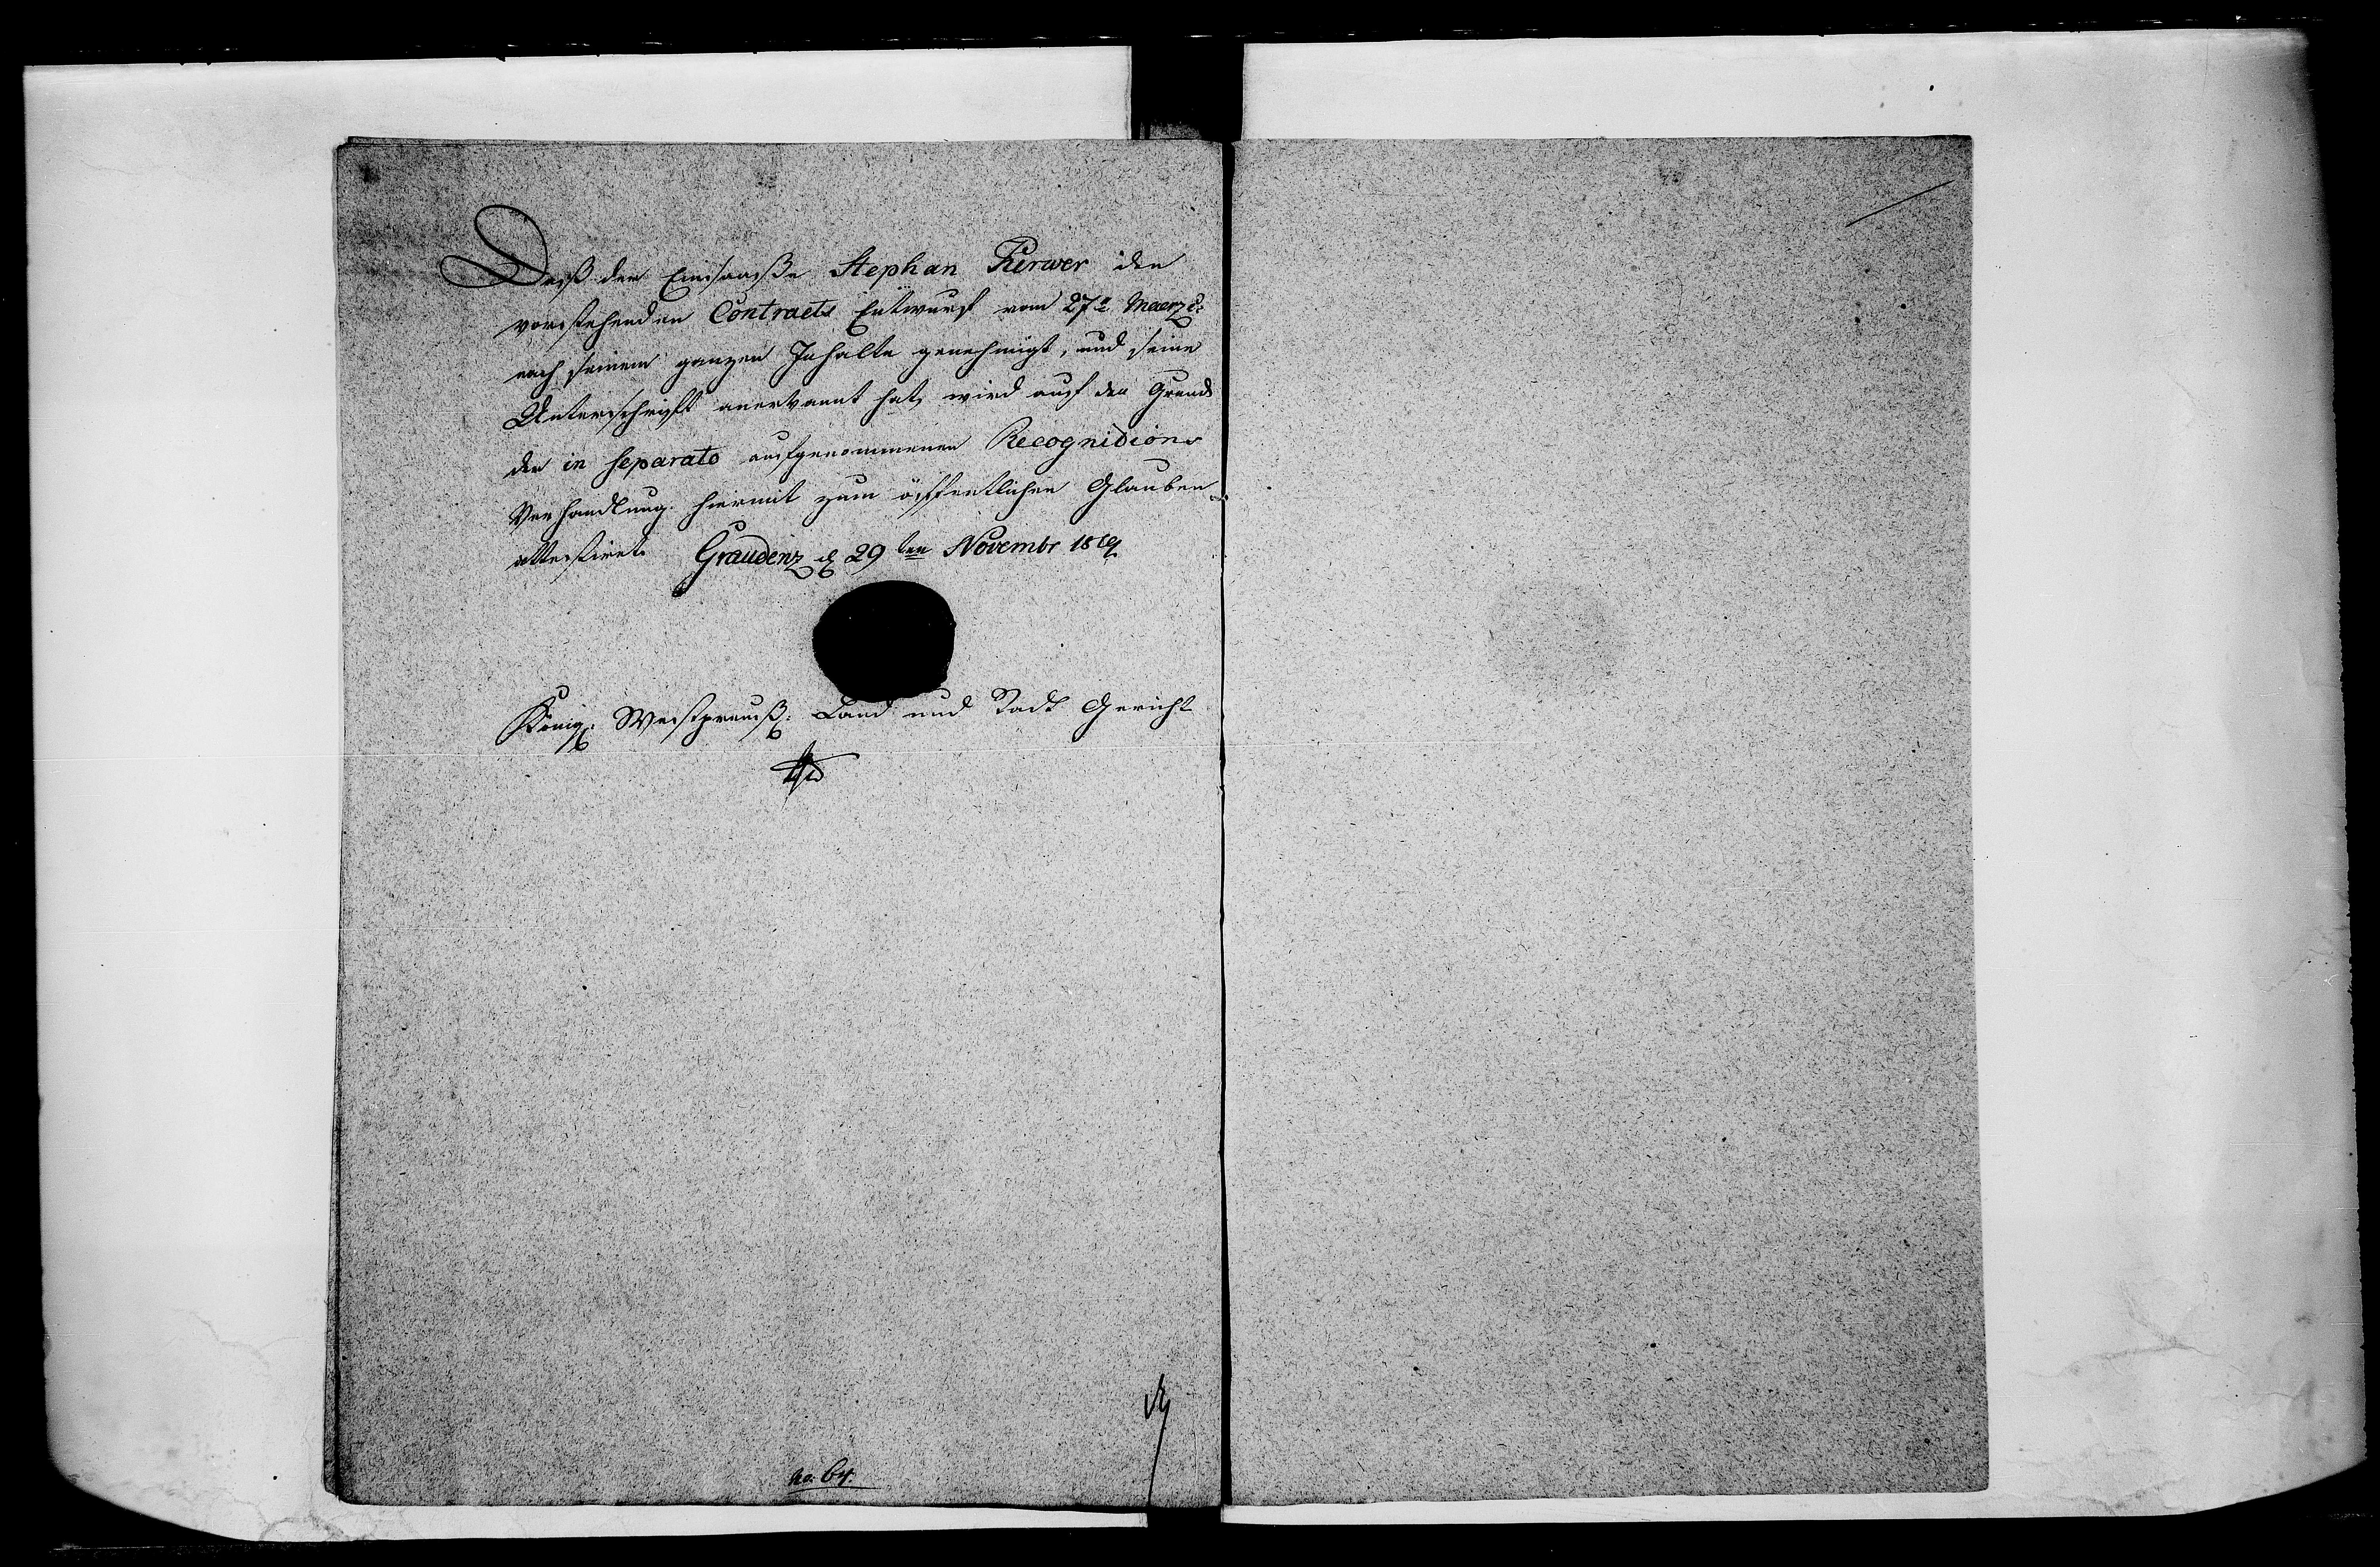 Daß der Einsaaße Stephan Kerwer den
vorstehenden Contracts Entwurf vom 27t Maerz c:
nach seinem ganzen Inhalte genehmigt, und seine
Unterschrift anerkannt hat, wird auf den Grund
der in separato aufgenommenen Recognitions
Verhandlung hiermit zum öffentlichen Glauben
attestiret. Graudenz d 29ten Novembr 1819
Königl: Westpreuß: Land und Stadt Gericht
no. 64.